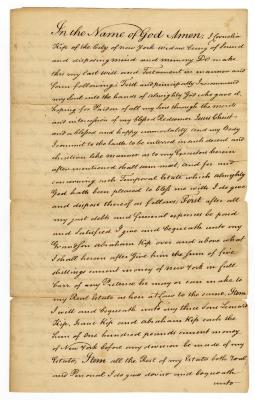 In the Name of God Amen, I Cornelia
Kip of the City of New York Widow being of Sound
and disposing mind and memory Do make
this my last Will and Testament in manner and
form following: First and principally I recommend
my Soul into the hands of Almighty God who gave it,
hoping for Pardon of all my Sins through the merits
and intercession of my blessed Redeemer Jesus Christ
and a blessed and happy immortality and my Body
I commit to the Earth to be interred in and decent and
christian like manner as to my Executors herein
after mentioned shall seem meet, and for and
concerning such Temporal Estate which almighty
God hath been pleased to bless me with I do give
and dispose thereof as follows, First after all
my just debts and Funeral expenses be paid
and Satisfied I give and bequeath unto my
Grandson Abraham Kip over and above what
I shall herein after Give him the sum of five
shillings current money of New York in full
barr of any Pretence he may or can make to
my Real Estate as heir at Law to the same, Item
I will and bequeath unto my three Sons Leonard
Kip, Isaac Kip and Abraham Kip each the
Sum of one hundred pounds current money
of New York before any division be made of my
Estate, Item all the Rest of my Estate both Real
and Personal I do give devise and bequeath
unto